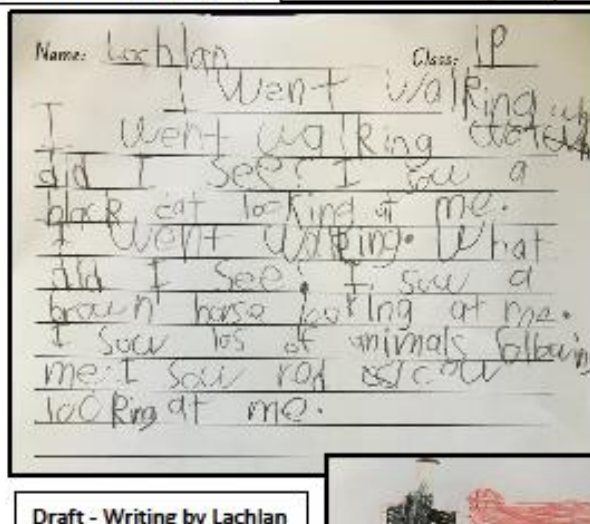 Name: Lochlan Class: 1P
I Went Walking
I went walking
did I see? I saw a
black cat looking at me.
I Went Walking. What
did I see? I saw a
brown horse looking at me.
I saw los of animals following
me. I saw rad cow
looking at me.
Draft - Writing by Lachlan